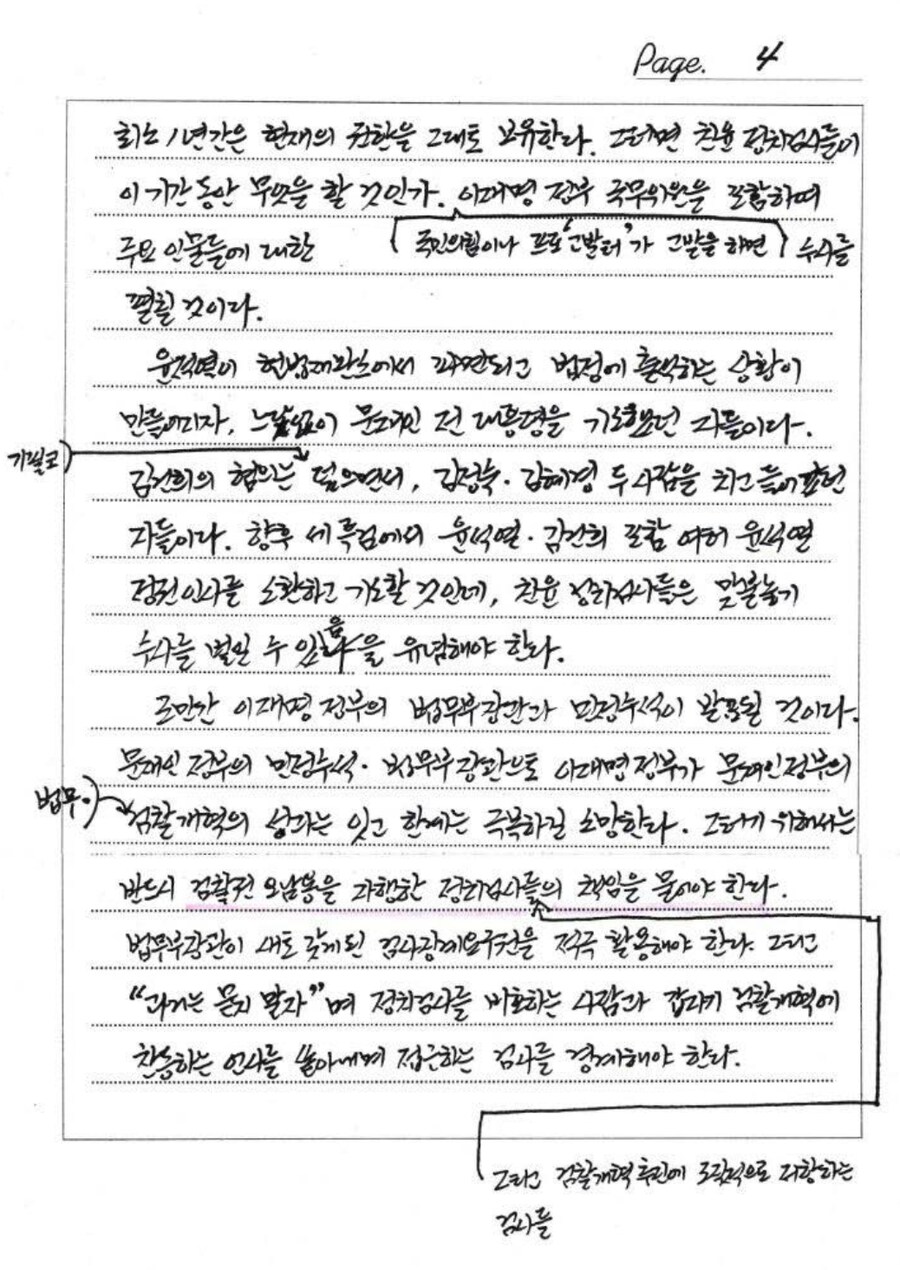 Page. 4
최소 1년간은 현재의 권한을 그대로 보유한다. 그러면 친윤 정치검사들이
이 기간 동안 무엇을 할 것인가. 이재명 정부 국무위원을 포함하여
국민의힘이나 프로 '고발러'가 고발을 하면
주요 인물들에 대한 수사를
펼칠 것이다.
윤석열이 헌법재판소에서 파면되고 법정에 출석하는 상황이
만들어지자, 느닷없이 문재인 전 대통령을 기소했던 자들이다.
기필코
김건희의 혐의는 덮으면서, 김정숙·김혜경 두 사람을 치고 들어갔던
자들이다. 향후 세 특검에서 윤석열·김건희 포함 여러 윤석열
정권 인사를 소환하고 기소할 것인데, 친윤 정치검사들은 맞불놓기
수사를 벌일 수 있음을 유념해야 한다.
조만간 이재명 정부의 법무부장관과 민정수석이 발표될 것이다.
문재인 정부의 민정수석·법무부장관으로 이재명 정부가 문재인 정부의
법무·
검찰개혁의 성과는 잇고 한계는 극복하길 소망한다. 그러기 위해서는
반드시 검찰권 오남용을 자행한 정치검사들의 책임을 물어야 한다.
법무부장관이 새로 갖게 된 검사징계요구권을 적극 활용해야 한다. 그리고
"과거는 묻지 말자"며 정치검사를 비호하는 사람과 갑자기 검찰개혁에
찬동하는 언사를 쏟아내며 접근하는 검사를 경계해야 한다.
그리고 검찰개혁 추진에 조직적으로 저항하는
검사들